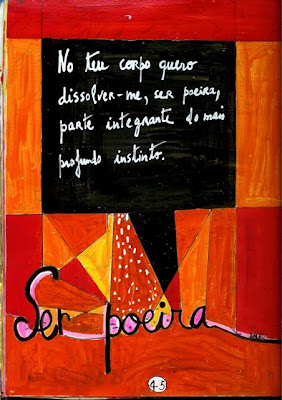 No teu corpo quero
dissolver-me, ser poeira,
parte integrante do mais
profundo instinto.
Ser poeira
45